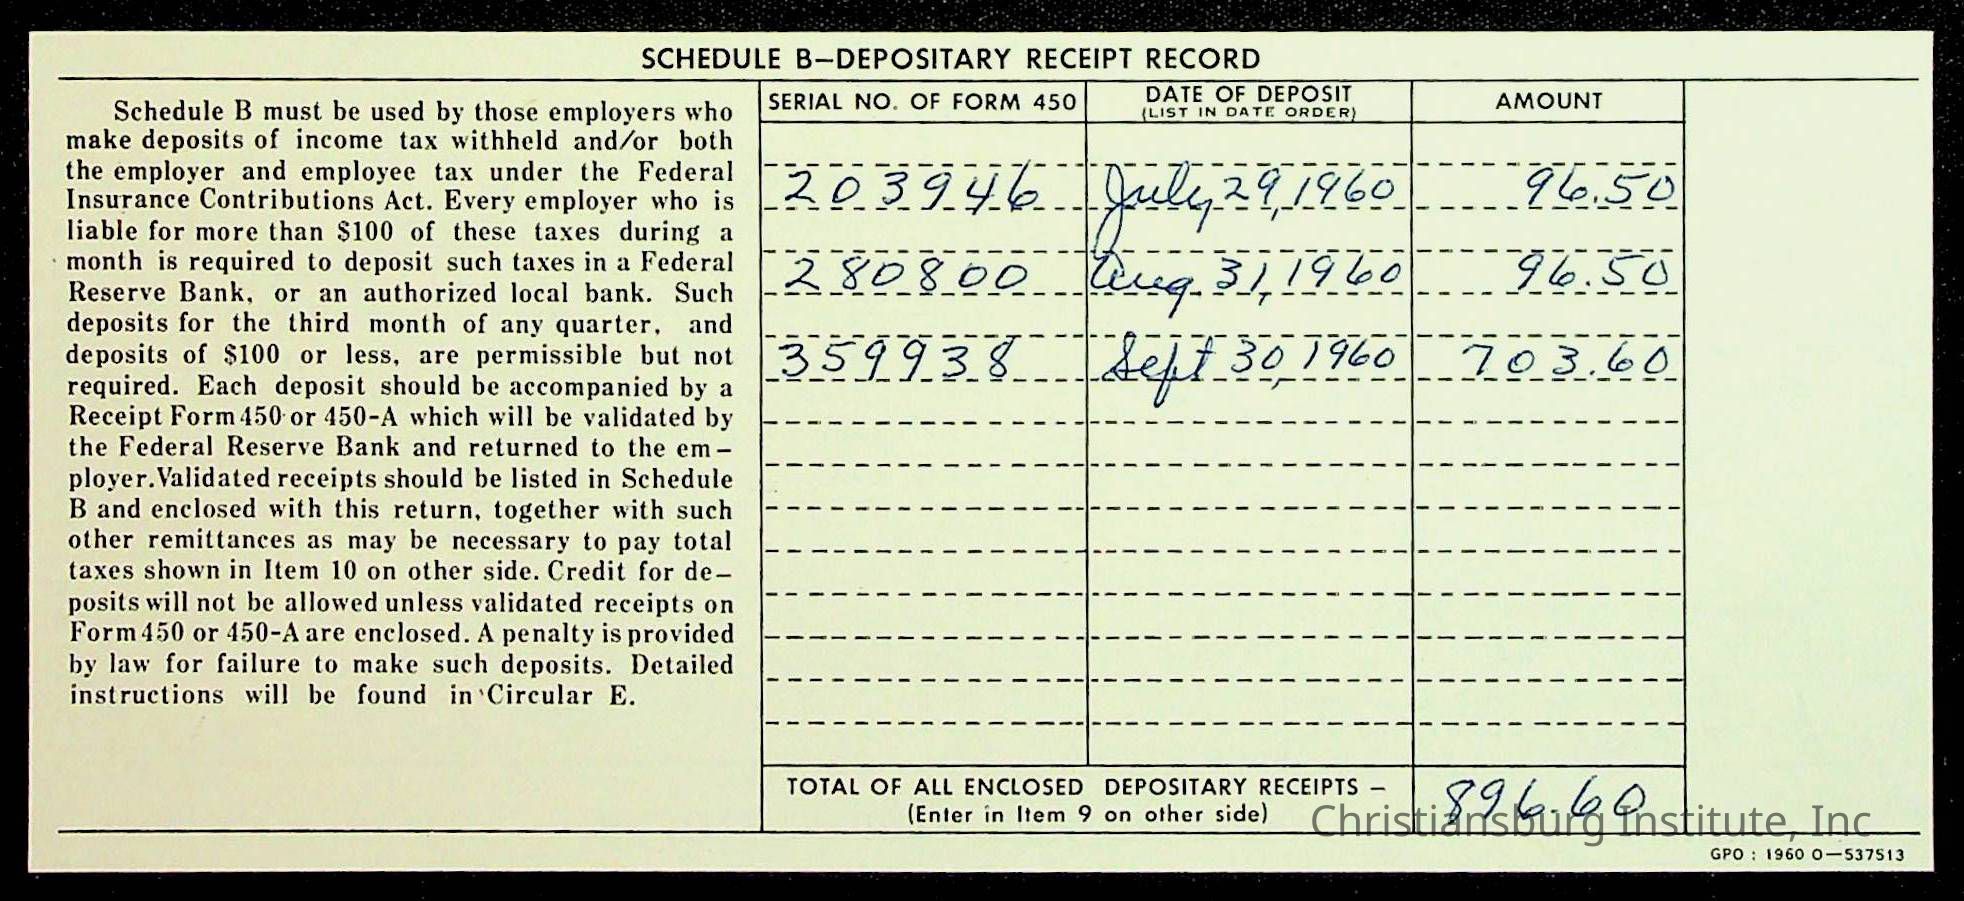 SCHEDULE B—DEPOSITARY RECEIPT RECORD
Schedule B must be used by those employers who
make deposits of income tax withheld and/or both
the employer and employee tax under the Federal
Insurance Contributions Act. Every employer who is
liable for more than $100 of these taxes during a
month is required to deposit such taxes in a Federal
Reserve Bank, or an authorized local bank. Such
deposits for the third month of any quarter, and
deposits of $100 or less, are permissible but not
required. Each deposit should be accompanied by a
Receipt Form 450 or 450-A which will be validated by
the Federal Reserve Bank and returned to the em-
ployer. Validated receipts should be listed in Schedule
B and enclosed with this return, together with such
other remittances as may be necessary to pay total
taxes shown in Item 10 on other side. Credit for de-
posits will not be allowed unless validated receipts on
Form 450 or 450-A are enclosed. A penalty is provided
by law for failure to make such deposits. Detailed
instructions will be found in Circular E.
SERIAL NO. OF FORM 450 DATE OF DEPOSIT (LIST IN DATE ORDER) AMOUNT
203946 July 29, 1960 96.50
280800 Aug. 31, 1960 96.50
359938 Sept 30, 1960 703.60
TOTAL OF ALL ENCLOSED DEPOSITARY RECEIPTS — 896.60
(Enter in Item 9 on other side)
Christiansburg Institute, Inc
GPO : 1960 O—537513